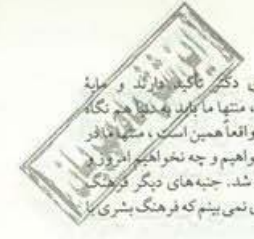 ی دکتر تأکید دارند و مایهٔ
، منتها ما باید به دنیا هم نگاه
واقعاً همین است ، منتها ما در
واهیم و چه نخواهیم امروز و
شد. جنبه‌های دیگر فرهنگ
ی نمی‌بینم که فرهنگ بشری با